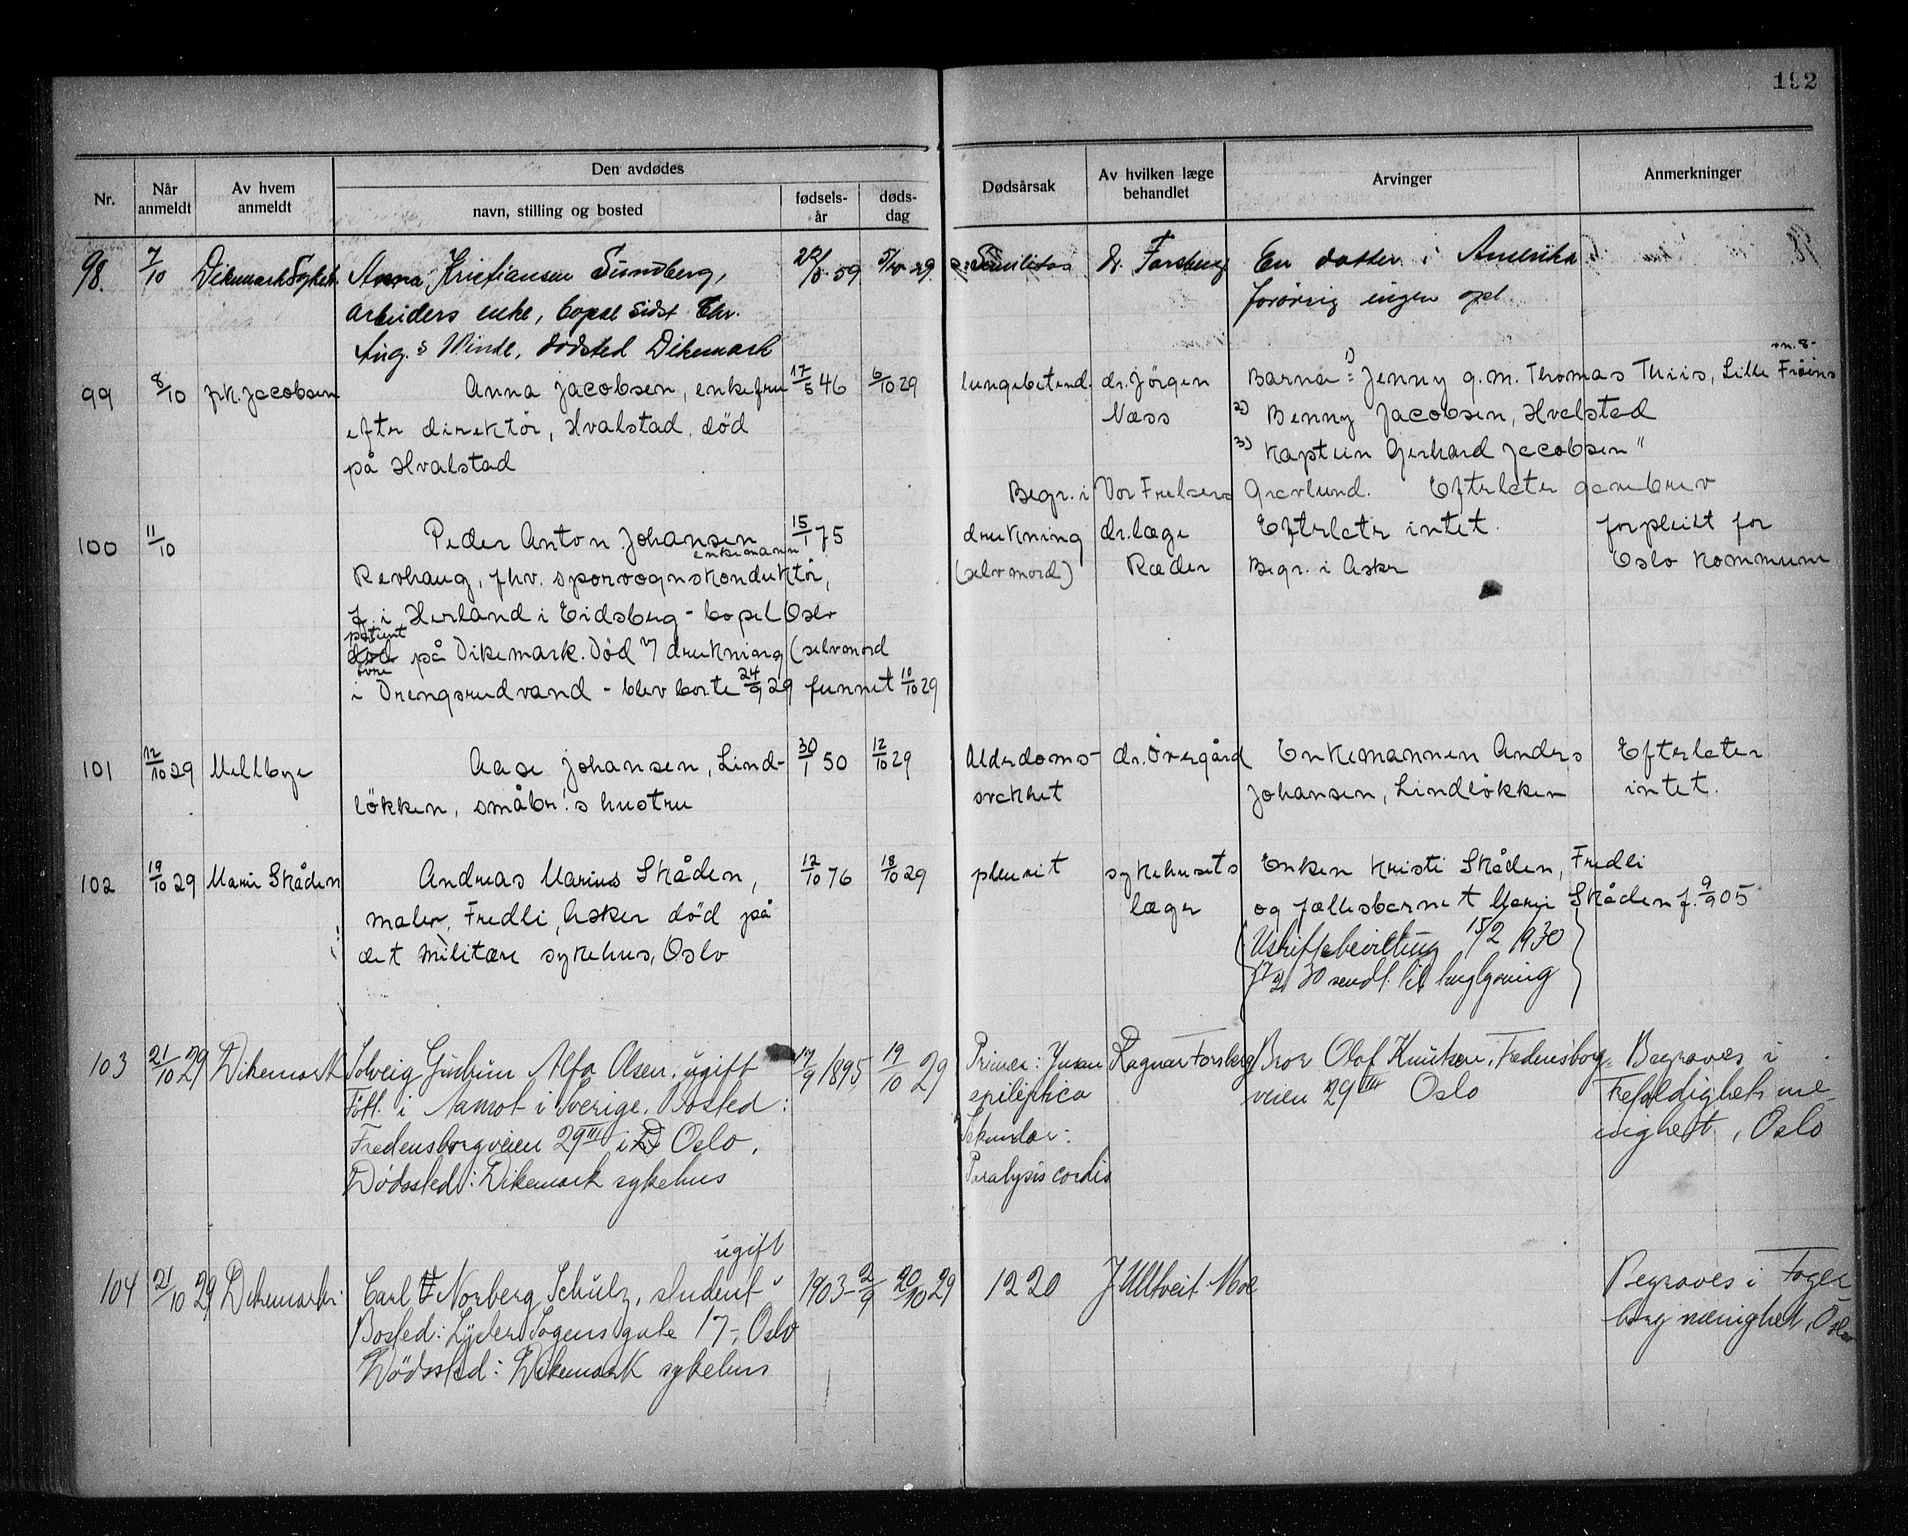 192
Nr.
Når anmeldt
Av hvem anmeldt
Den avdødes
navn, stilling og bosted
fødsels-år
døds-dag
Dødsårsak
Av hvilken læge behandlet
Arvinger
Anmerkninger
98. 7/10 Dikemark Sykeh. Anna Kristiansen Sundberg, 5/10 29 Senilitas dr Forsberg En datter i Amerika
arbeiders enke, bopæl sidst Chr. forøvrig ingen opl.
Aug. s Minde, dødsted Dikemark
99 8/10 frk. Jacobsen Anna Jacobsen, enkefru 17/5 46 6/10 29 lungebetend. dr. Jörgen Barna: 1) Jenny g.m. Thomas Thiis, Lille Fröens
eftr direktör, Hvalstad, död Næss 2) Benny Jacobsen, Hvalstad
på Hvalstad 3) Kaptein Gerhard Jacobsen "
Begr. i Vor Frelsers Gravlund. Efterlater gavebrev
100 11/10 Peder Anton Johansen 15/1 75 drukning dr.læge Efterlatr intet. forpleiet for
enkemann
Revhaug, fhv. sporvognskonduktör, (selvmord) Ræder Begr. i Asker Oslo Kommune
f. i Herland i Eidsberg - bopel Oslo
patient
död på Dikemark. Död v/ drukning (selvmord
övre
i Drengsrudvand - blev borte 24/9 29 funnet 10/10 29
101 12/10 29 Mellbye Aase Johansen, Lind- 30/1 50 12/10 29 Alderdoms- dr. Övergård Enkemannen Anders Efterlater
lökken, småbr.s hustru svakhet Johansen, Lindlökken intet.
102 19/10 29 Marie Skåden Andreas Marius Skåden, 12/10 76 18/10 29 pleurit sykehusets Enken Kristi Skåden, Fredli
maler, Fredli, Asker död på læger og fællesbarnet Marie Skåden f. 9/9 05
det militære sykehus, Oslo (Uskiftebevilling 15/2 1930
17/2 30 sendt til tinglysning)
103 21/10 29 Dikemark Solveig Alfa Olsen, ugift 17/9 1895 19/10 29 Primær: Ragnar Forsberg Bror Olaf Knutsen, Fredensborg- Begraves i
Født i i Sverige. Bosted: epileptica veien 29 III Oslo Trefoldighets me-
Fredensborgveien 29 III i Oslo. Sekundær: nighet, Oslo
Dødssted: Dikemark sykehus Paralysis cordis
ugift
104 21/10 29 Dikemark Carl Norberg Schulz, student 1903 - 2/9 20/10 29 1220 J Ulltveit-Moe Begraves i Fager
Bosted: Lyder Sagens gate 17, Oslo borg menighet, Oslo
Dødssted: Dikemark sykehus